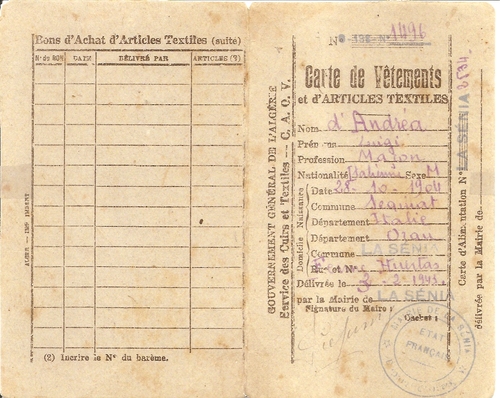 Bons d'Achat d'Articles Textiles (suite)
DATE DÉLIVRÉ PAR ARTICLES (2)
(2) Incrire le N° du barème.
GOUVERNEMENT GÉNÉRAL DE L'ALGÉRIE
Service des Cuirs et Textiles — C. A. C. V.
1496
Carte de Vêtements
et d'ARTICLES TEXTILES
Nom d'Andréa
Prénom Luigi
Profession Maçon
Nationalité Italienne Sexe M
Naissance
Date 28-10-1904
Commune
Département Italie
Domicile
Département Oran
Commune LA SÉNIA
Rue et N°
Délivrée le 3-2-1943
par la Mairie de LA SÉNIA
Signature du Maire : Cachet :
ETAT
FRANÇAIS
Carte d'Alimentation N°
délivrée par la Mairie de
LA SÉNIA